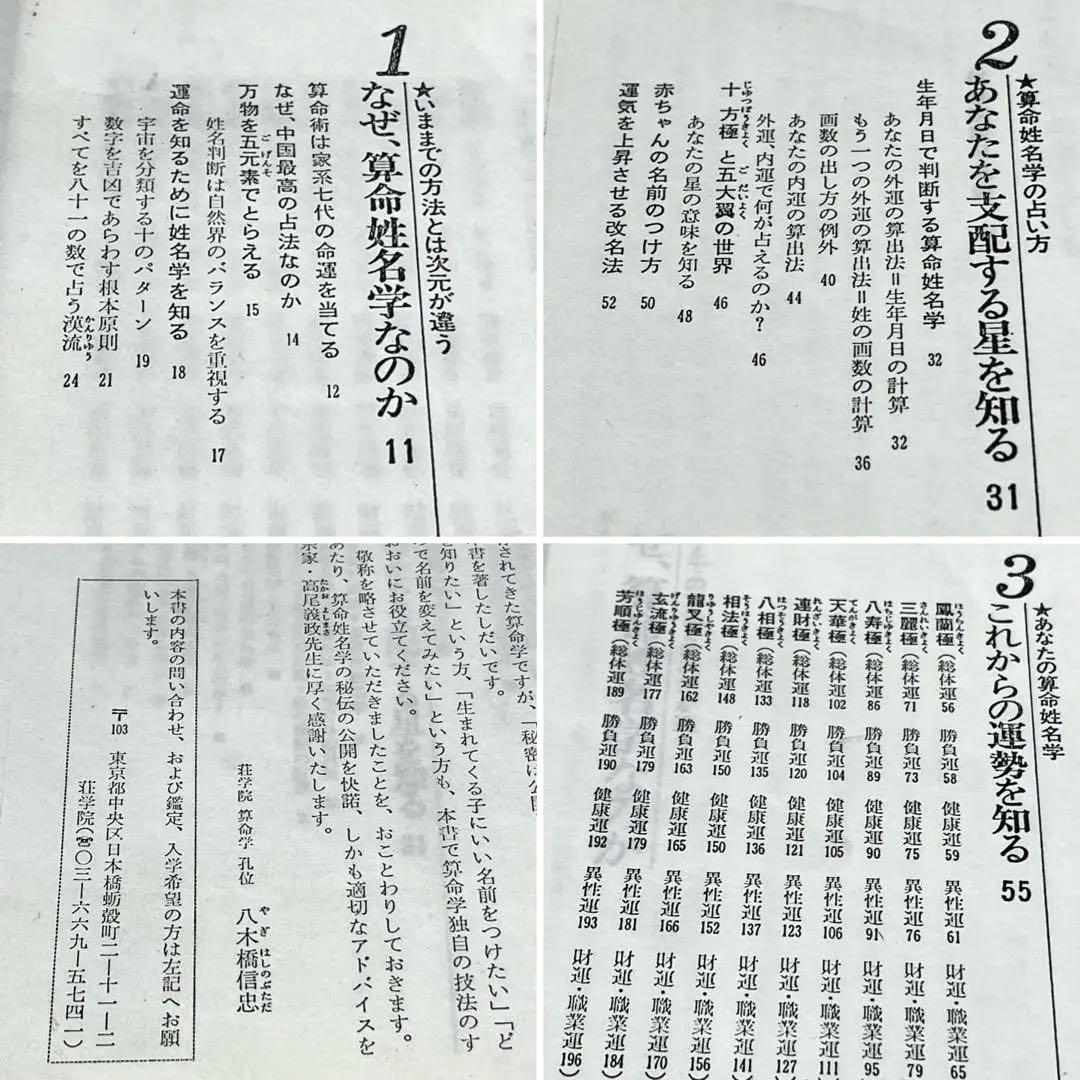 1
なぜ、算命姓名学なのか 11
★いままでの方法とは次元が違う
算命術は家系七代の命運を当てる 12
なぜ、中国最高の占法なのか 14
万物を五元素でとらえる 15
ごげんそ
姓名判断は自然界のバランスを重視する 17
運命を知るために姓名学を知る 18
宇宙を分類する十のパターン 19
数字を吉凶であらわす根本原則 21
すべてを八十一の数で占う漢流 24
かんりゅう
2
あなたを支配する星を知る 31
★算命姓名学の占い方
生年月日で判断する算命姓名学 32
あなたの外運の算出法＝生年月日の計算 32
もう一つの外運の算出法＝姓の画数の計算 36
画数の出し方の例外 40
あなたの内運の算出法 44
外運、内運で何が占えるのか? 46
十方極と五大翼の世界 46
じゅっぽうきょく ごだいよく
あなたの星の意味を知る 48
赤ちゃんの名前のつけ方 50
運気を上昇させる改名法 52
されてきた算命学ですが、「秘密は公開
本書を著ししだいです。
と知りたい」という方、「生まれてくる子にいい名前をつけたい」「ど
で名前を変えてみたい」という方も、本書で算命学独自の技法のす
おおいにお役立てください。
敬称を略させていただきましたことを、おことわりしておきます。
あたり、算命姓名学の秘伝の公開を快諾、しかも適切なアドバイスを
宗家・高尾義政先生に厚く感謝いたします。
たかお よしまさ
荘学院 算命学 孔位 八木橋信忠
やぎはしのぶただ
本書の内容の問い合わせ、および鑑定、入学希望の方は左記へお願
いします。
〒103 東京都中央区日本橋蛎殻町二ー十一ー二
荘学院（☎〇三ー六六九ー五七四一）
3
これからの運勢を知る 55
★あなたの算命姓名学
鳳蘭極（総体運56 勝負運58 健康運59 異性運61 財運・職業運65
ほうらんきょく
三麗極（総体運71 勝負運73 健康運75 異性運76 財運・職業運79
さんれいきょく
八寿極（総体運86 勝負運89 健康運90 異性運91 財運・職業運95
はちじゅきょく
天華極（総体運102 勝負運104 健康運105 異性運106 財運・職業運111
てんがきょく
連財極（総体運118 勝負運120 健康運121 異性運123 財運・職業運127
れんざいきょく
八相極（総体運133 勝負運135 健康運136 異性運137 財運・職業運141
はっそうきょく
相法極（総体運148 勝負運150 健康運150 異性運152 財運・職業運156
そうほうきょく
龍叉極（総体運162 勝負運163 健康運165 異性運166 財運・職業運170
りゅうしゃきょく
玄流極（総体運177 勝負運179 健康運179 異性運181 財運・職業運184
げんりゅうきょく
芳順極（総体運189 勝負運190 健康運192 異性運193 財運・職業運196）
ほうじゅんきょく